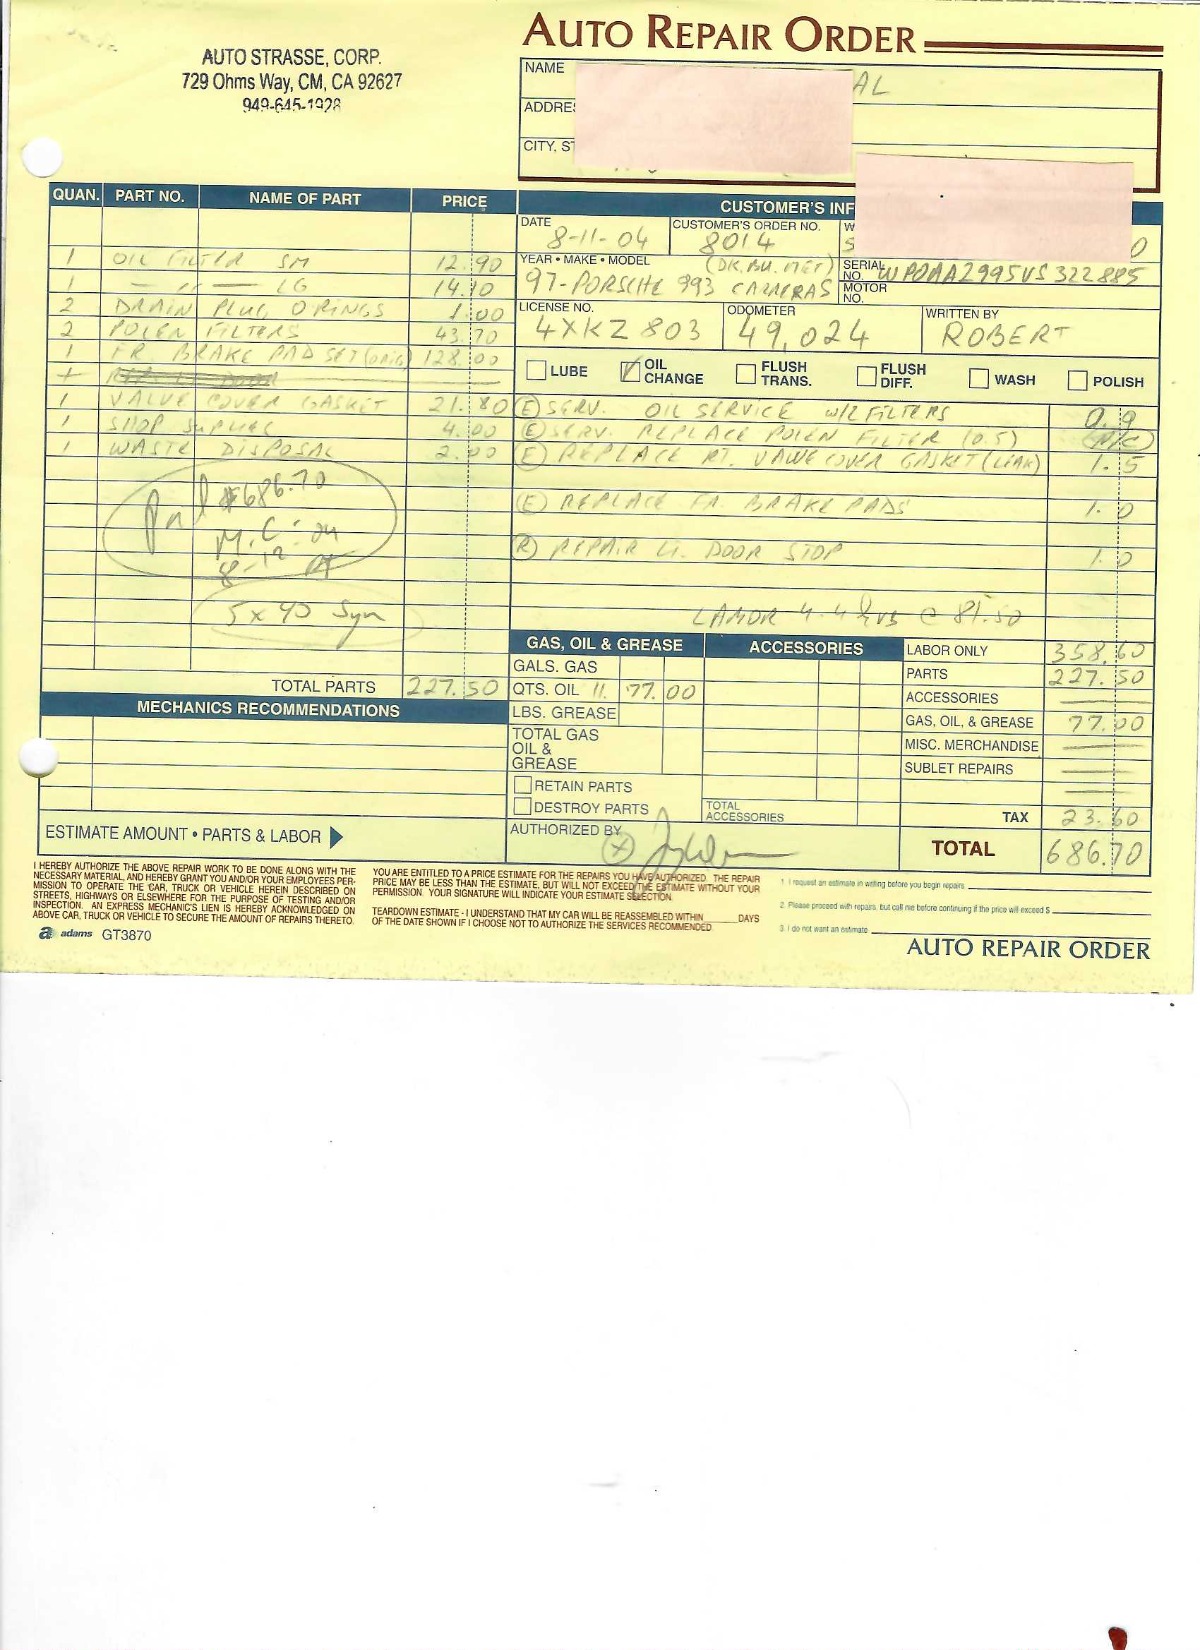 AUTO STRASSE, CORP.
729 Ohms Way, CM, CA 92627
949-645-1928
AUTO REPAIR ORDER
NAME
AL
ADDRE
CITY, ST
QUAN. PART NO. NAME OF PART PRICE
1 OIL FILTER SM 12.90
1 — 〃 — LG 14.10
2 DRAIN PLUG O RINGS 1.00
2 POLEN FILTERS 43.70
1 FR. BRAKE PAD SET (ORIG) 128.00
1 VALVE COVER GASKET 21.80
1 SHOP SUPPLIES 4.00
1 WASTE DISPOSAL 2.00
Pd $686.70
M.C.
8-12
5x40 Syn
TOTAL PARTS 227.50
MECHANICS RECOMMENDATIONS
ESTIMATE AMOUNT • PARTS & LABOR
CUSTOMER'S INF
DATE 8-11-04
CUSTOMER'S ORDER NO. 8014
W
S
0
YEAR • MAKE • MODEL (DK.BU.MET)
97-PORSCHE 993 CARRERAS
SERIAL NO. WPOAA2995VS322885
MOTOR NO.
LICENSE NO. 4XKZ803
ODOMETER 49,024
WRITTEN BY ROBERT
LUBE OIL CHANGE FLUSH TRANS. FLUSH DIFF. WASH POLISH
(E) SERV. OIL SERVICE W/2 FILTERS 0.9
(E) SERV. REPLACE POLEN FILTER (0.5) (N/C)
(E) REPLACE RT VALVE COVER GASKET (LEAK) 1.5
(E) REPLACE FR. BRAKE PADS 1.0
(R) REPAIR LT. DOOR STOP 1.0
LABOR 4.4 hrs @ 81.50
GAS, OIL & GREASE ACCESSORIES
GALS. GAS
QTS. OIL 11. 77.00
LBS. GREASE
TOTAL GAS OIL & GREASE
RETAIN PARTS
DESTROY PARTS
TOTAL ACCESSORIES
LABOR ONLY 358.60
PARTS 227.50
ACCESSORIES —
GAS, OIL, & GREASE 77.00
MISC. MERCHANDISE —
SUBLET REPAIRS —
TAX 23.60
TOTAL 686.70
AUTHORIZED BY
(X)
I HEREBY AUTHORIZE THE ABOVE REPAIR WORK TO BE DONE ALONG WITH THE
NECESSARY MATERIAL, AND HEREBY GRANT YOU AND/OR YOUR EMPLOYEES PER-
MISSION TO OPERATE THE CAR, TRUCK OR VEHICLE HEREIN DESCRIBED ON
STREETS, HIGHWAYS OR ELSEWHERE FOR THE PURPOSE OF TESTING AND/OR
INSPECTION. AN EXPRESS MECHANIC'S LIEN IS HEREBY ACKNOWLEDGED ON
ABOVE CAR, TRUCK OR VEHICLE TO SECURE THE AMOUNT OF REPAIRS THERETO.
YOU ARE ENTITLED TO A PRICE ESTIMATE FOR THE REPAIRS YOU HAVE AUTHORIZED. THE REPAIR
PRICE MAY BE LESS THAN THE ESTIMATE, BUT WILL NOT EXCEED THE ESTIMATE WITHOUT YOUR
PERMISSION. YOUR SIGNATURE WILL INDICATE YOUR ESTIMATE SELECTION.
TEARDOWN ESTIMATE - I UNDERSTAND THAT MY CAR WILL BE REASSEMBLED WITHIN ____ DAYS
OF THE DATE SHOWN IF I CHOOSE NOT TO AUTHORIZE THE SERVICES RECOMMENDED.
1. I request an estimate in writing before you begin repairs.
2. Please proceed with repairs, but call me before continuing if the price will exceed $
3. I do not want an estimate.
adams GT3870
AUTO REPAIR ORDER